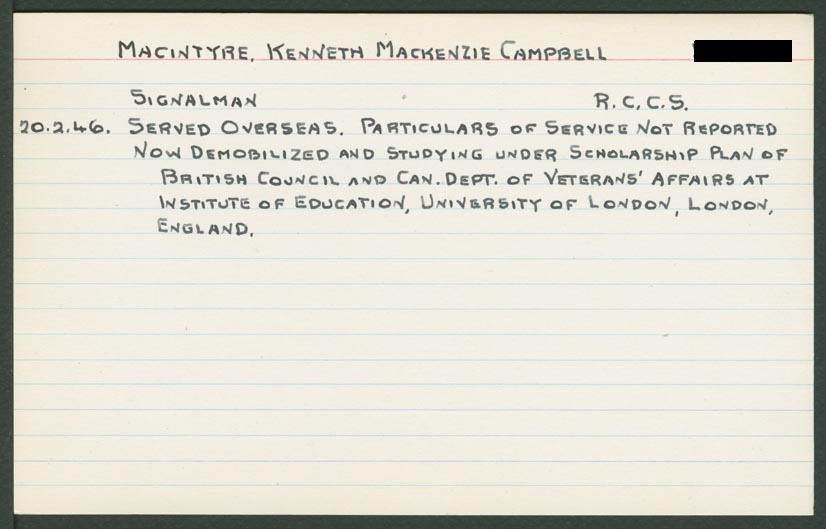 MACINTYRE, KENNETH MACKENZIE CAMPBELL
SIGNALMAN R.C.C.S.
20.2.46. SERVED OVERSEAS. PARTICULARS OF SERVICE NOT REPORTED
NOW DEMOBILIZED AND STUDYING UNDER SCHOLARSHIP PLAN OF
BRITISH COUNCIL AND CAN. DEPT. OF VETERANS' AFFAIRS AT
INSTITUTE OF EDUCATION, UNIVERSITY OF LONDON, LONDON,
ENGLAND.